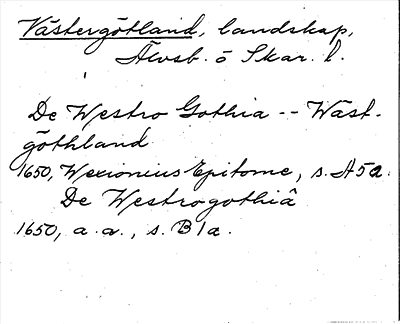 Västergötland, landskap,
Älvsb. o Skar. l.
De Westro Gothia -- Wäst-
göthland
1650, Wexionius Epitome, s. A5a.
De Westrogothiâ
1650, a.a., s. B1a.